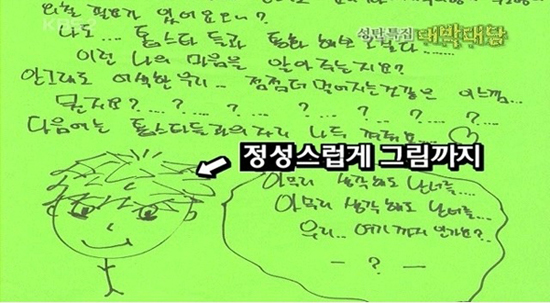 KBS 2
성탄특집 대박대담
외할 필요가 있어요오~?
나도... 톱스타 들과 통화 해보고 싶다......
이런 나의 마음을 알아주는지요?
안그래도 어색한 우리... 점점더 멀어지는것같은 이느낌...
뭔지요? ...? ...? ...? ...? ...? ...?
다음에는 톱스타들과의 자리 나두
정성스럽게 그림까지
아무리 생각해도 난 너를...
아무리 생각해도 난 너를....
우리.. 여기 까지 인가요?
- ? -